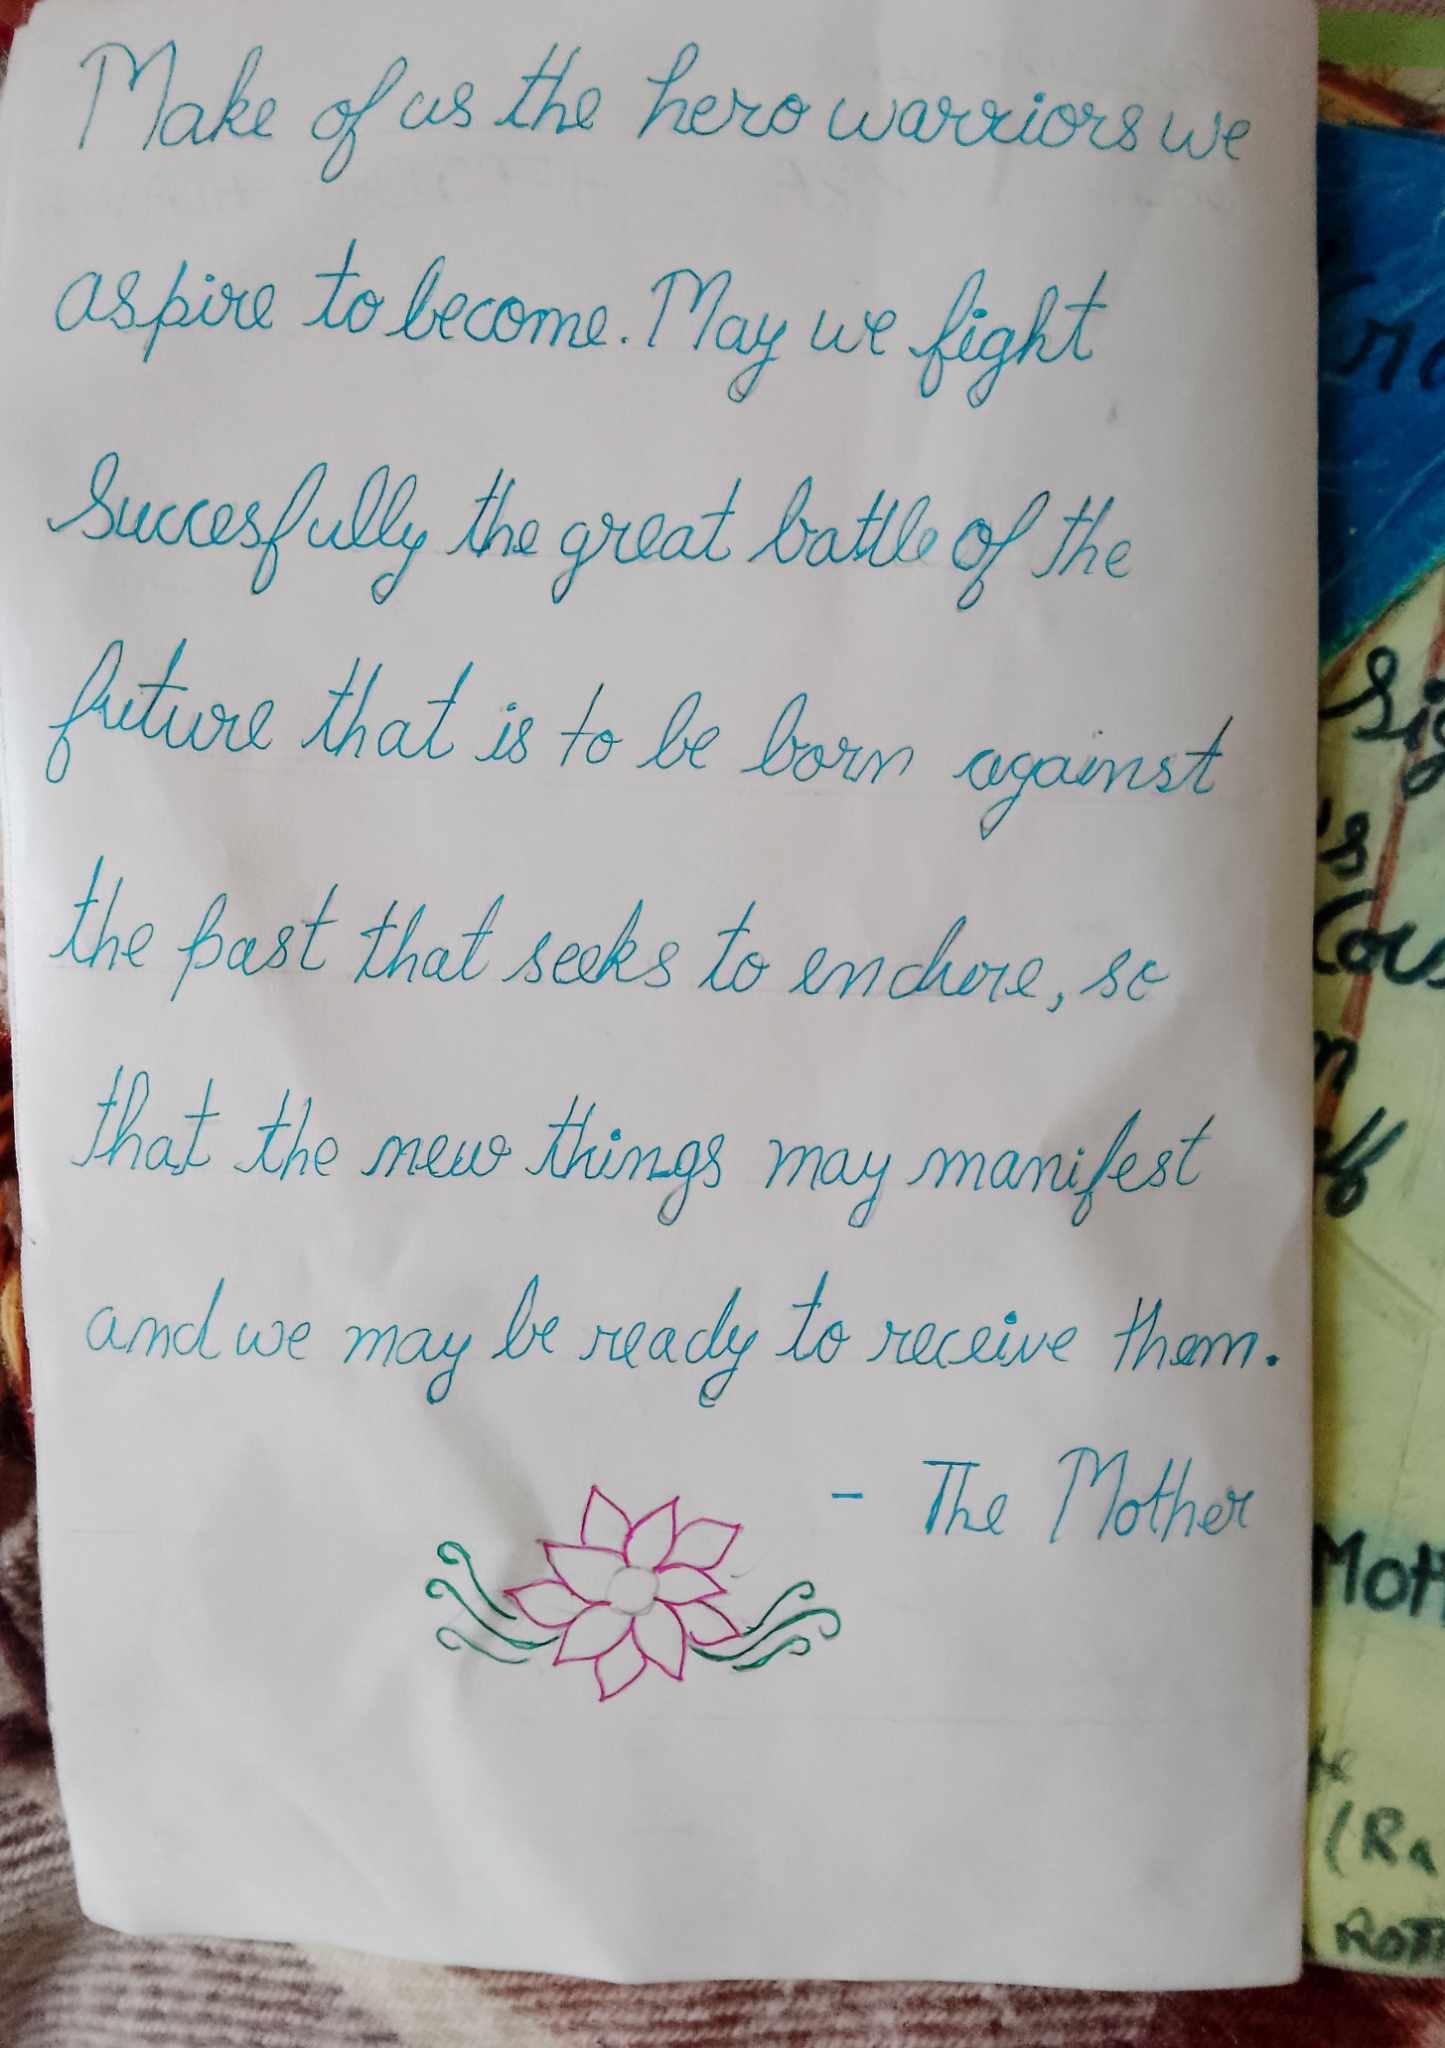 Make of us the hero warriors we
aspire to become. May we fight
Succesfully the great battle of the
future that is to be born against
the past that seeks to endure, so
that the new things may manifest
and we may be ready to receive them.
- The Mother